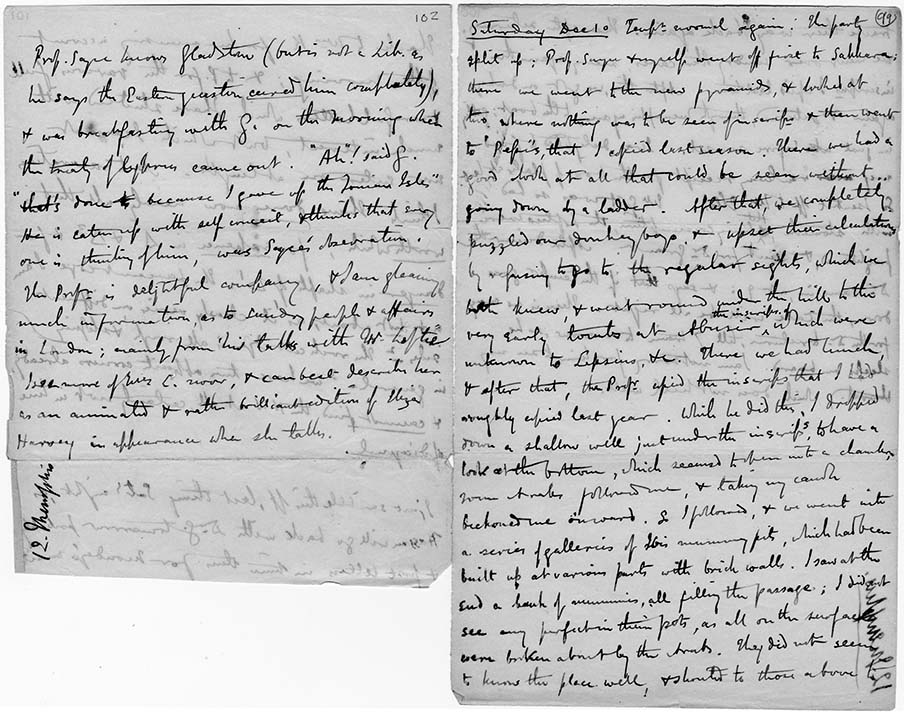 102
Prof. Sayce knows Gladstone (but is not a Lib. as
he says the Eastern question cured him completely),
& was breakfasting with G. on the morning when
the treaty of Cyprus came out. "Ah"! said G.
"that's done because I gave up the Ionian Isles"
He is eaten up with self conceit, & thinks that every
one is thinking of him, was Sayce's observation.
The Profr. is delightful company, & I am gleaning
much information, as to sundry people & affairs
in London; mainly from his talks with Mr Loftie
I see more of Miss C. now, & can best describe her
as an animated & rather brilliant edition of Eliza
Harvey in appearance when she talks.
12. Memphis
99
Saturday Dec 10 Tempr. normal again: The party
split up; Prof. Sayce & myself went off first to Sakkara;
there we went to the new pyramids, & looked at
two where nothing was to be seen of inscrips & then went
to Pepi's, that I copied last season. There we had a
good look at all that could be seen without
going down by a ladder. After that, we completely
puzzled our donkey boys, & upset their calculations
by refusing to go to the regular sights, which we
both knew, & went round under the hills to the
very early tombs at Abusir, the inscrips. of which were
unknown to Lepsius, &c. There we had lunch,
& after that, the Profr. copied the inscrips that I had
roughly copied last year. While he did this, I dropped
down a shallow well just under the inscrips, to have a
look at the bottom, which seemed to open into a chamber,
some Arabs followed me, & taking my candle
beckoned me onward. So I followed, & we went into
a series of galleries of Ibis mummy pits, which had been
built up at various parts with brick walls. I saw at the
end a bank of mummies, all filling the passage; I did not
see any perfect in their pots, as all on the surface
were broken about by the Arabs. They did not seem
to know the place well, & shouted to those above